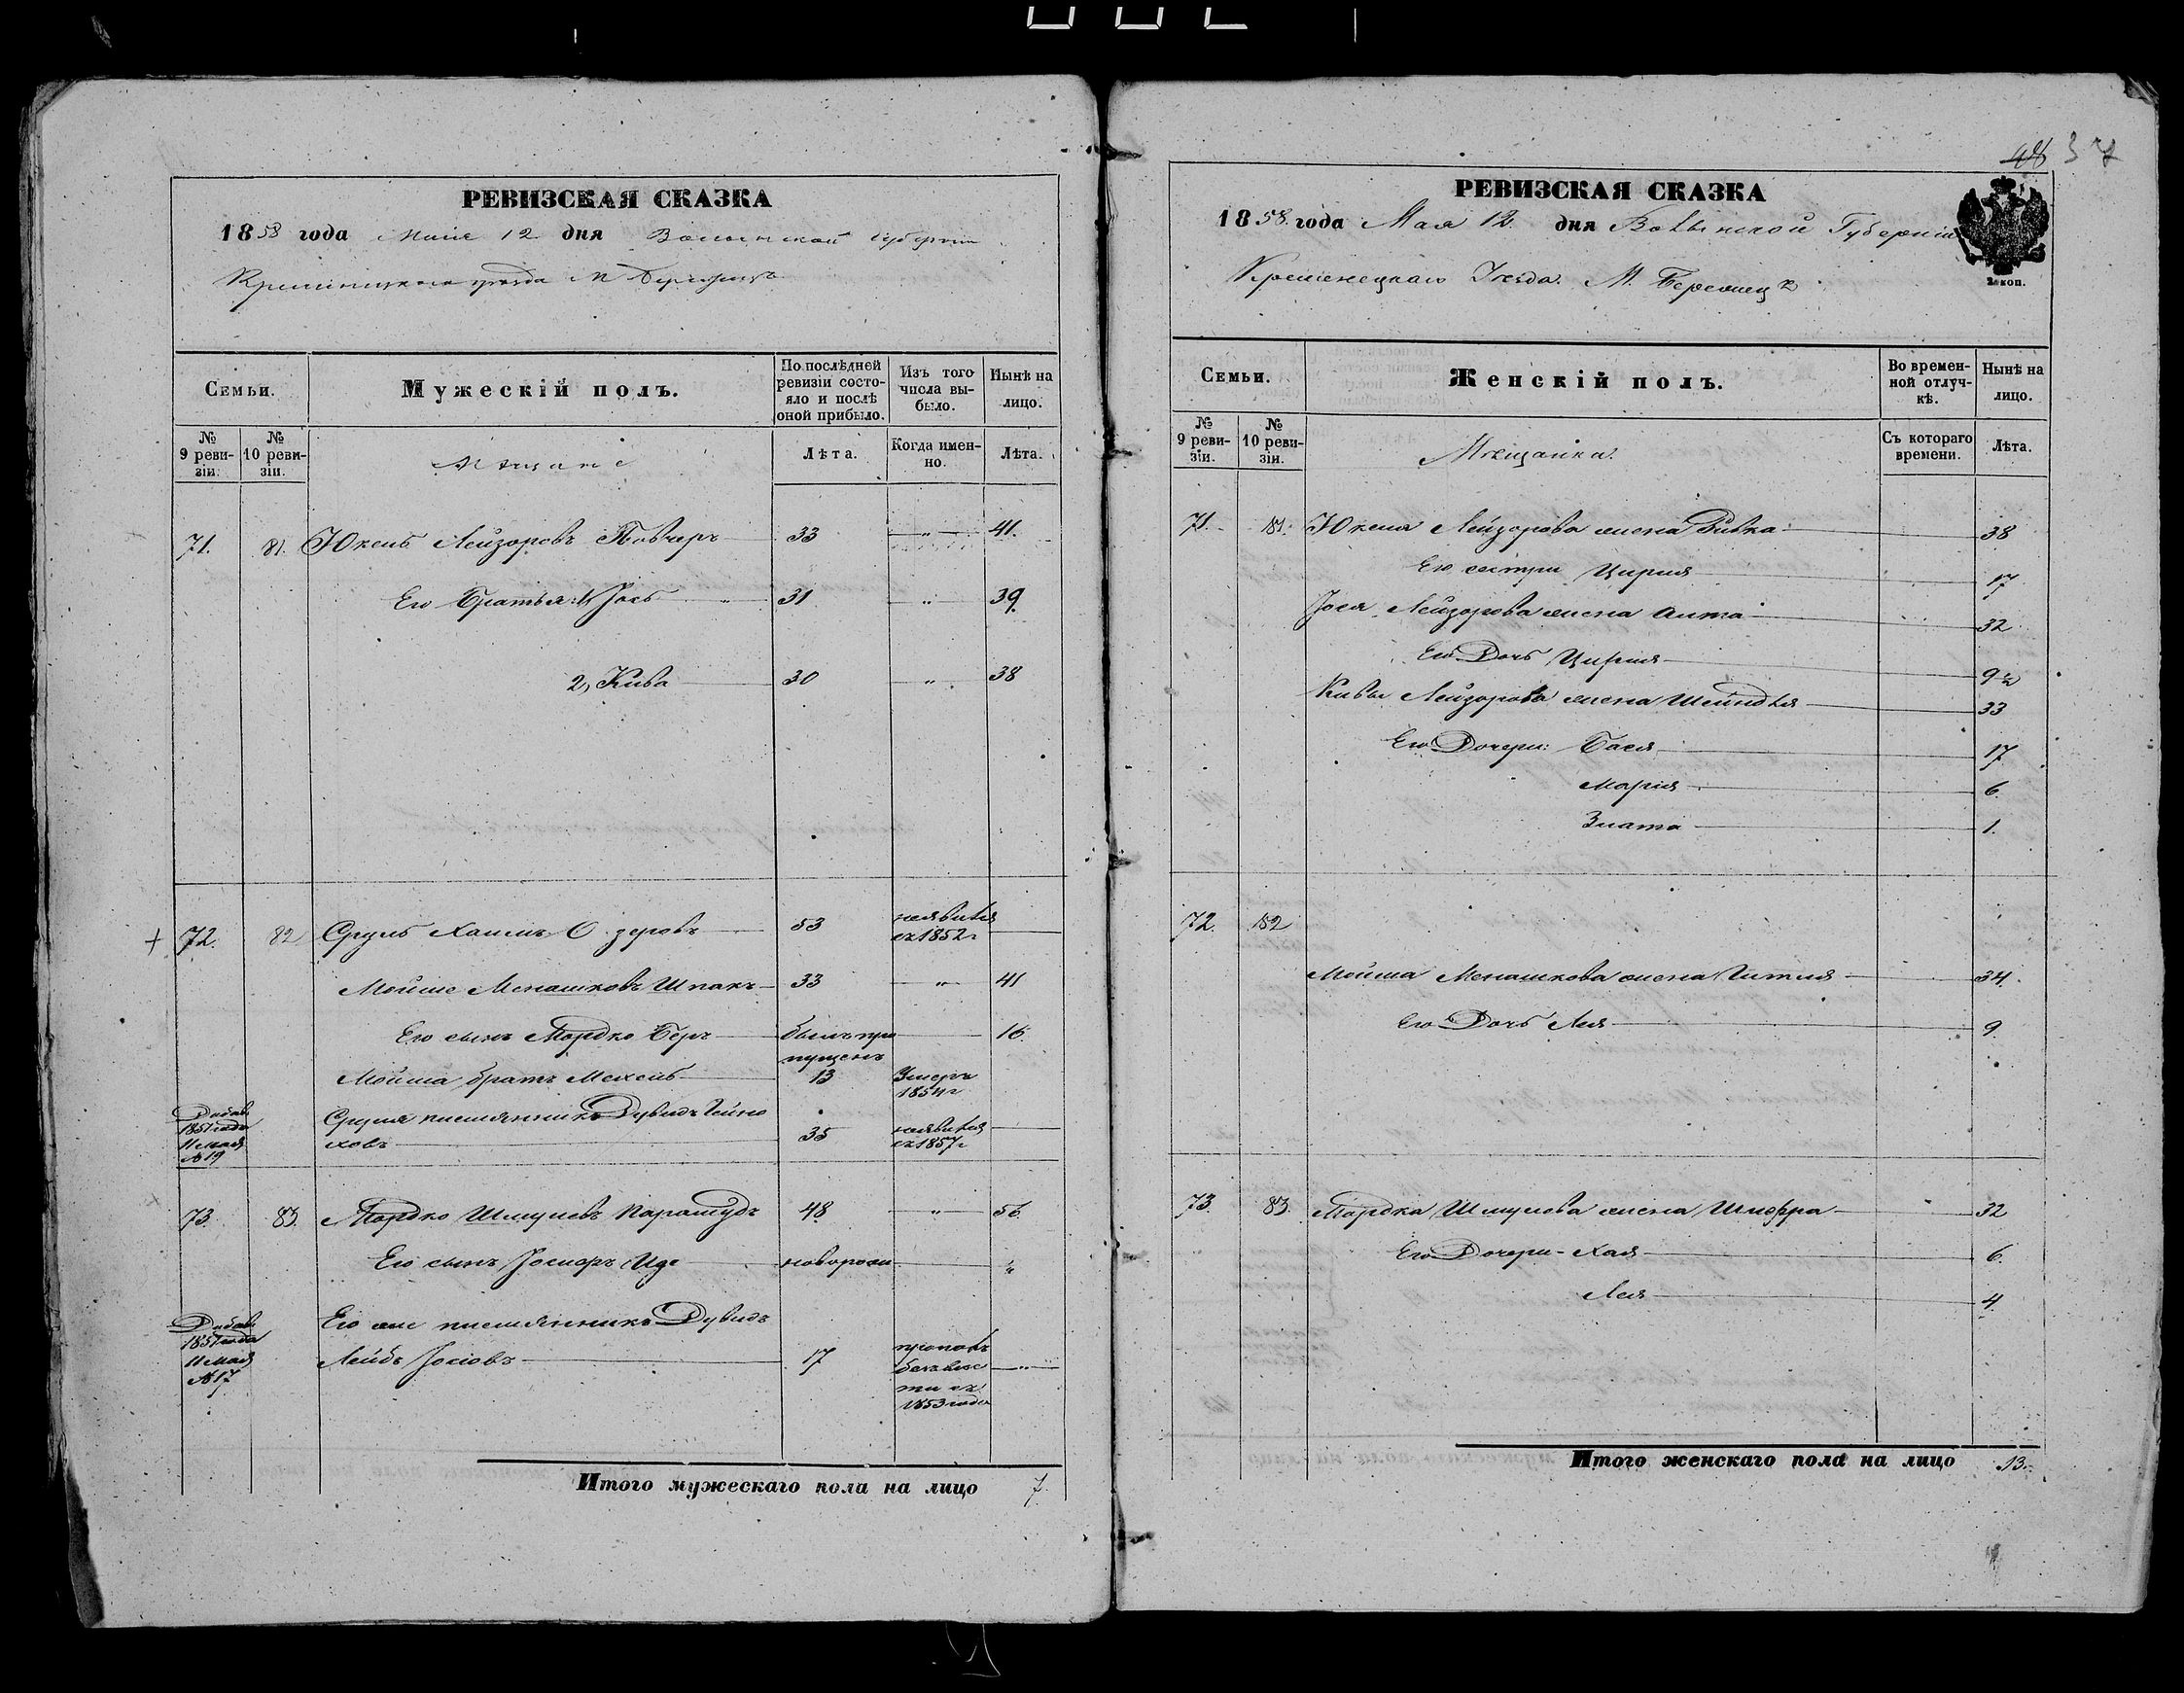 37
РЕВИЗСКАЯ СКАЗКА
1858 года Мая 12 дня Волынской Губернии
Кременецкаго уезда М.
Семьи.
Мужескій полъ.
По послѣдней ревизіи состо-
яло и послѣ
оной прибыло.
Изъ того
числа вы-
было.
Нынѣ на
лицо.
№
9 реви-
зіи.
№
10 реви-
зіи.
Мещане
Лѣта.
Когда имен-
но.
Лѣта.
71. 81. Юкель Лейзоровъ 33 „ 41.
Его Братья: 1, Іось „ 31 „ 39
2, Кива 30 „ 38
+ 72. 82 Сруль Хаимъ Озеровъ 53 неявился
съ 1852 г
Мойше Менашковъ Шпакъ 33 „ 41
Его сынъ Мордко Беръ былъ про 16.
пущенъ
Мойша братъ Мехель 13 Умеръ
1854 г
Добав.
1851 года
11 мая
№ 19
Сруля племянникъ Дувидъ Гейно
ховъ 35 неявился
съ 1857 г
73. 83. Мордко Шмулевъ 48 „ 56.
Его сынъ Іосифъ новорож
Добав.
1851 года
11 Мая
№ 17
Его же племянникъ Дувидъ
Лейбъ Іосіовъ 17 пропалъ
безъ вѣс
ти съ
1853 года
„
Итого мужескаго пола на лицо 7.
РЕВИЗСКАЯ СКАЗКА
1858. года Мая 12. дня Волынской Губерніи
Кременецкаго Уезда. М.
коп.
Семьи.
Женскій полъ.
Во времен-
ной отлуч-
кѣ.
Нынѣ на
лицо.
№
9 реви-
зіи.
№
10 реви-
зіи.
Мещанки.
Съ котораго
времени.
Лѣта.
71. 81. Юкеля Лейзорова жена Ривка 38
Его сестра Цирля 17
Іося Лейзорова жена 32
Его Дочь Цирля 9½
Кивы Лейзорова жена Шейндля 33
Его Дочери: Бася 17
Марія 6.
Злата 1.
72. 82
Мойша Менашкова жена Гитля 34.
Его Дочь Лея 9.
73. 83. Мордка Шмулева жена Шифра 32
Его Дочери - Хая 6.
Лея 4
Итого женскаго пола на лицо 13.